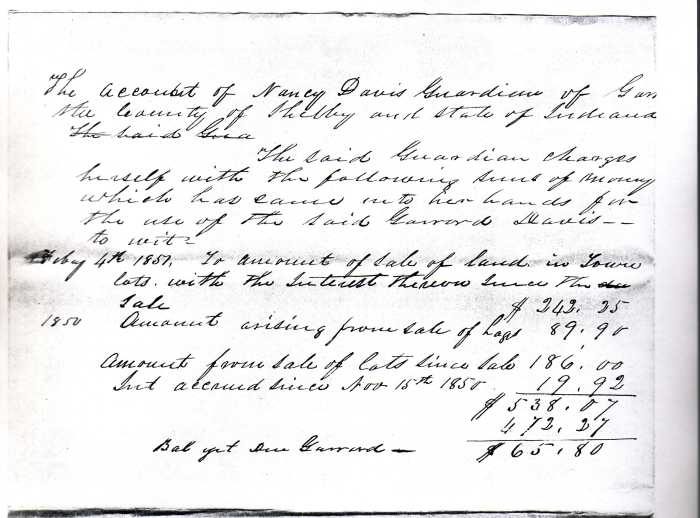 The Account of Nancy Davis Guardian of Garr
the County of Shelby and State of Indiana
The said Gua
The said Guardian charges
herself with the following sums of money
which has came into her hands for
the use of the said Garrard Davis --
to wit =
Feby 4th 1851. To amount of sale of land in Town
lots. with the Interest thereon since the du
Sale $ 242. 25
1850 Amount arising from sale of hogs 89. 90
Amount from sale of lots since sale 186. 00
Int accrued since Nov 15th 1850. 19. 92
$ 538. 07
472. 27
Bal yet Due Garrard - $ 65. 80